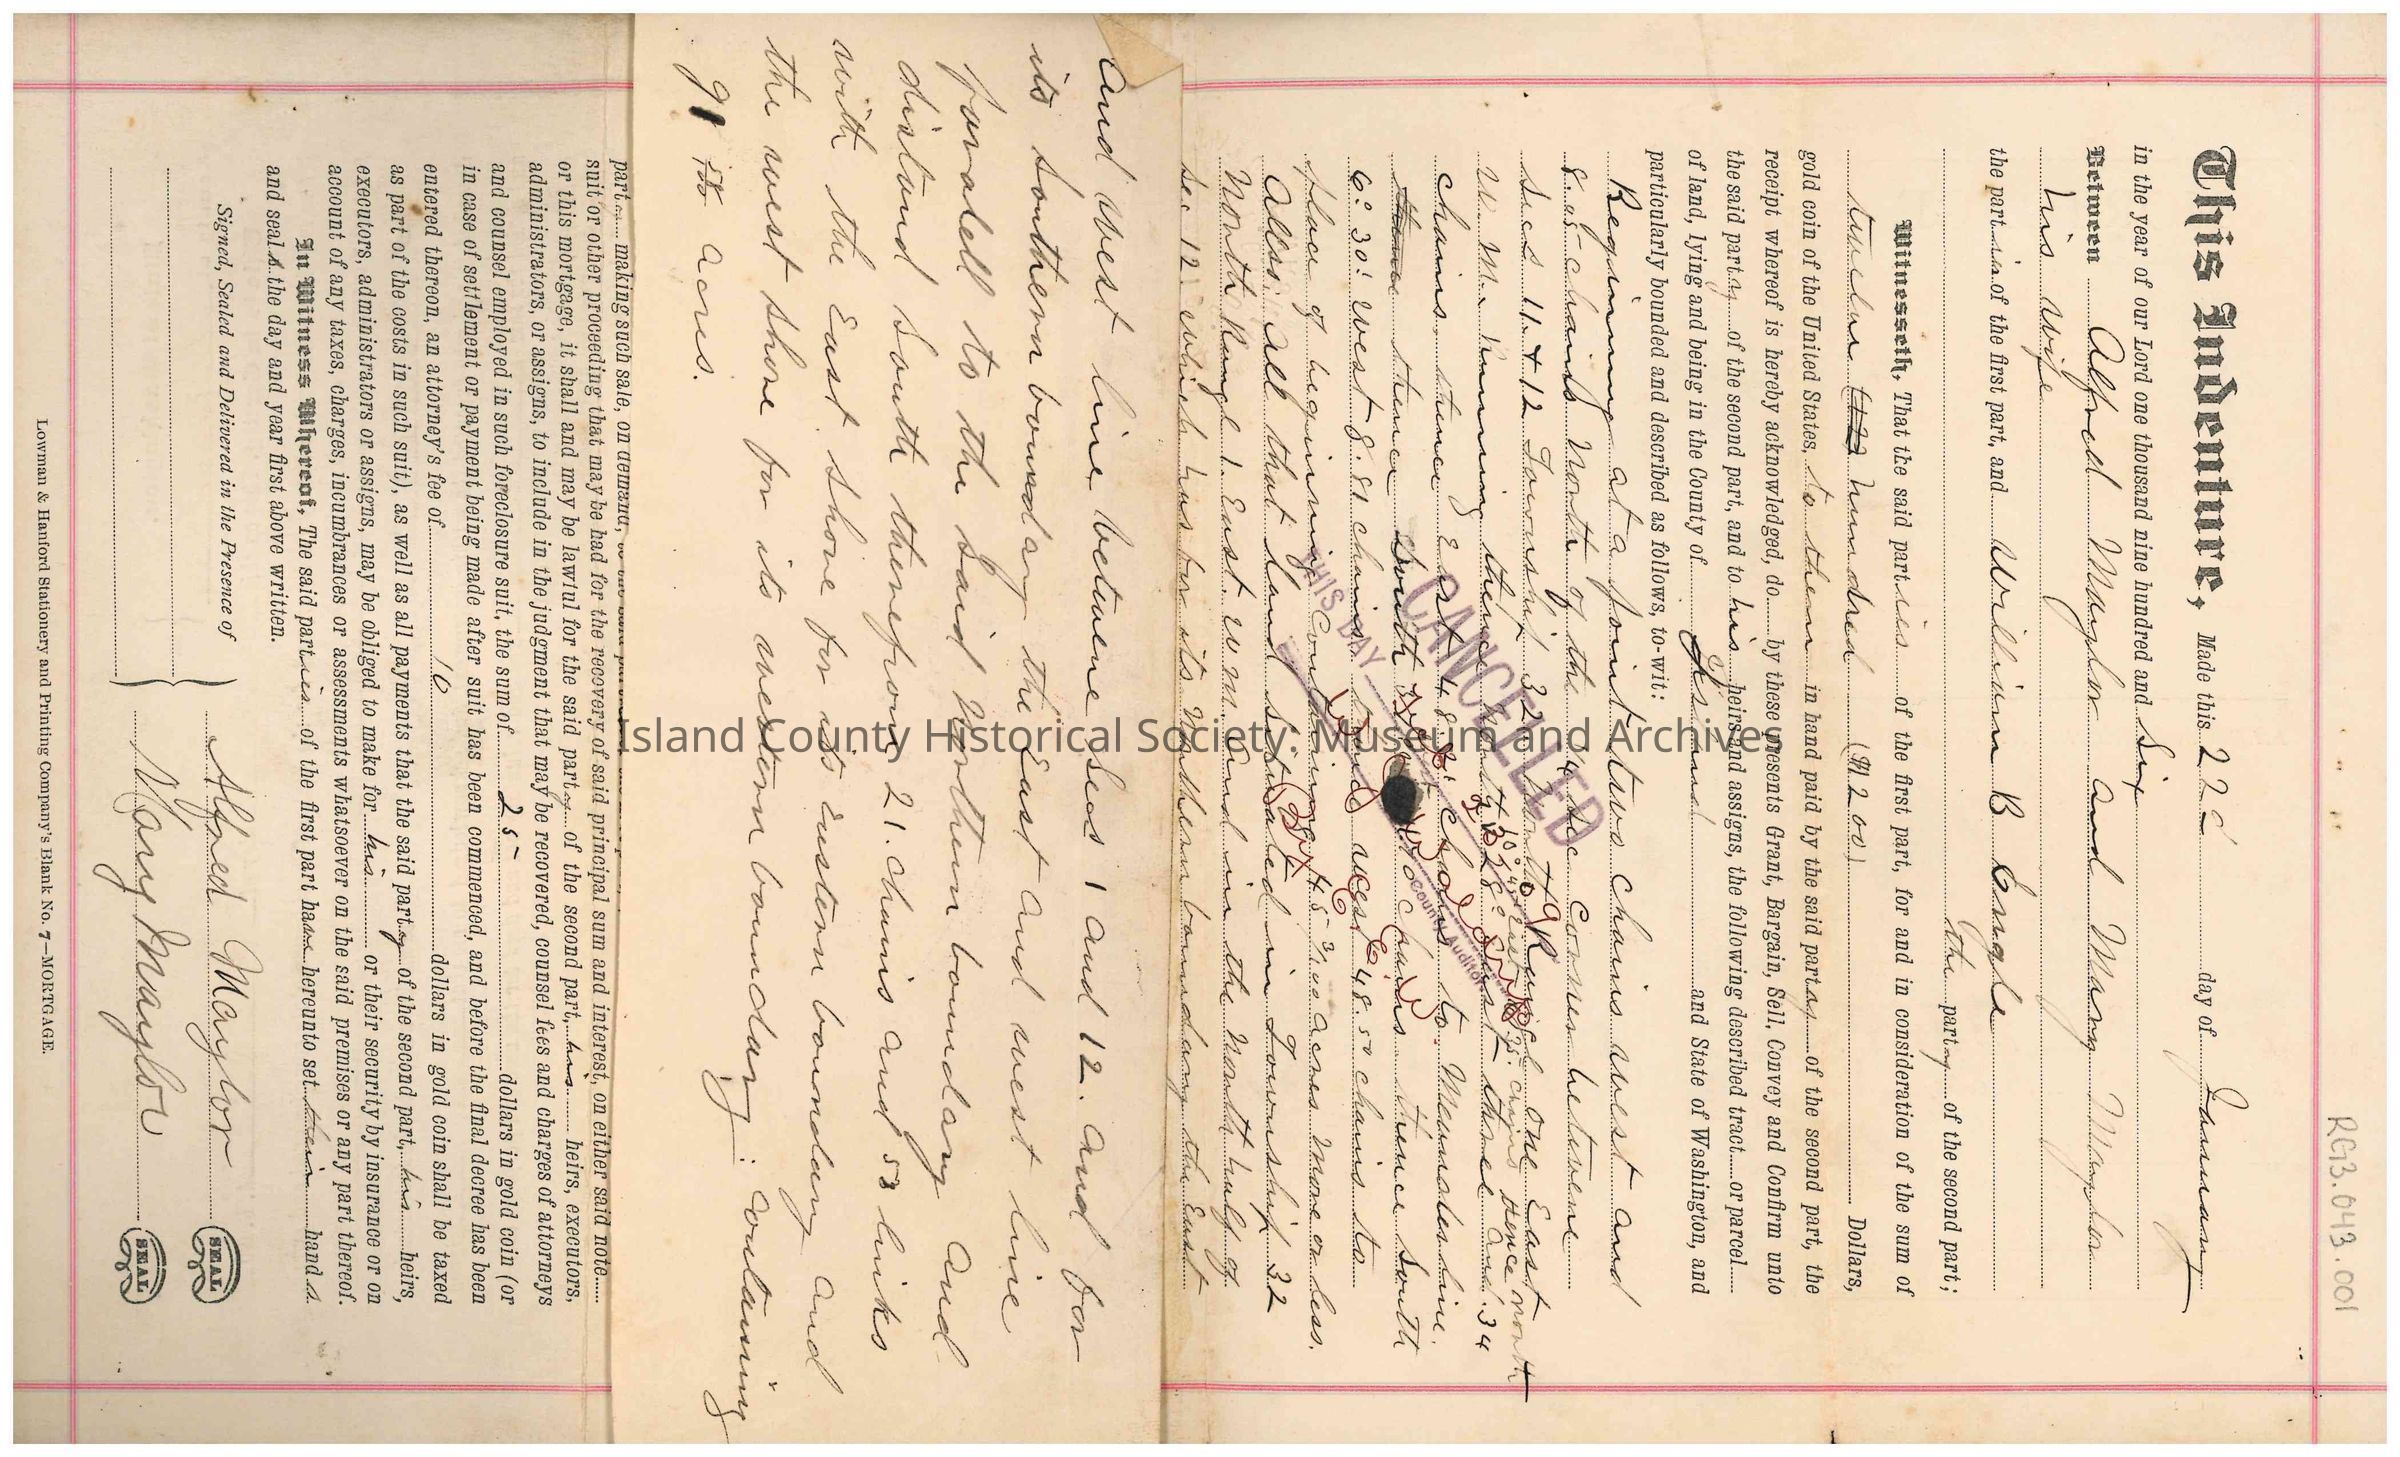 RG13.043.001
This Indenture, Made this 22d day of January
in the year of our Lord one thousand nine hundred and Six
Between Alfred Maylor and Mary Maylor
his wife
the parties of the first part, and William B Engle
the party of the second part;
Witnesseth, That the said parties of the first part, for and in consideration of the sum of
twelve hundred (1200) Dollars,
gold coin of the United States, to them in hand paid by the said party of the second part, the
receipt whereof is hereby acknowledged, do by these presents Grant, Bargain, Sell, Convey and Confirm unto
the said party of the second part, and to his heirs and assigns, the following described tract or parcel
of land, lying and being in the County of Island and State of Washington, and
particularly bounded and described as follows, to-wit:
Beginning at a point two chains west and
8.05 chains North of the 1/4 sec corner betweene
Secs 11 & 12 Township 32 North Range one East
W. M. Running thence North East thence North three and 34
chains thence East 48. chains to Meander line.
thence South chains thence South
6° 30' West 8.81 chains thence west 48.50 chains to
place of beginning containing 45 3/100 acres more or less.
Also: All that land situated in Township 32
North Range 1. East. W. M. and in the North half of
Sec 12. which has for its Northern boundary the East
CANCELLED
THIS DAY
County Auditor
and west line betweene Secs 1 and 12. and for
its southern boundary the East and west line
paralell to the said Northern boundary and
distand South therefrom 21. chains and 53 links
with the East shore for its Eastern boundary and
the west shore for its western boundary: containing
91 acres.
part making such sale, on demand,
suit or other proceeding that may be had for the recovery of said principal sum and interest, on either said note
or this mortgage, it shall and may be lawful for the said party of the second part, his heirs, executors,
administrators, or assigns, to include in the judgment that may be recovered, counsel fees and charges of attorneys
and counsel employed in such foreclosure suit, the sum of 25- dollars in gold coin (or
in case of settlement or payment being made after suit has been commenced, and before the final decree has been
entered thereon, an attorney's fee of 10 dollars in gold coin shall be taxed
as part of the costs in such suit), as well as all payments that the said party of the second part, his heirs,
executors, administrators or assigns, may be obliged to make for his or their security by insurance or on
account of any taxes, charges, incumbrances or assessments whatsoever on the said premises or any part thereof.
In Witness Whereof, The said parties of the first part have hereunto set their hands
and seals the day and year first above written.
Signed, Sealed and Delivered in the Presence of
Alfred Maylor SEAL
Mary Maylor SEAL
Lowman & Hanford Stationery and Printing Company's Blank No. 7—MORTGAGE.
Island County Historical Society: Museum and Archives